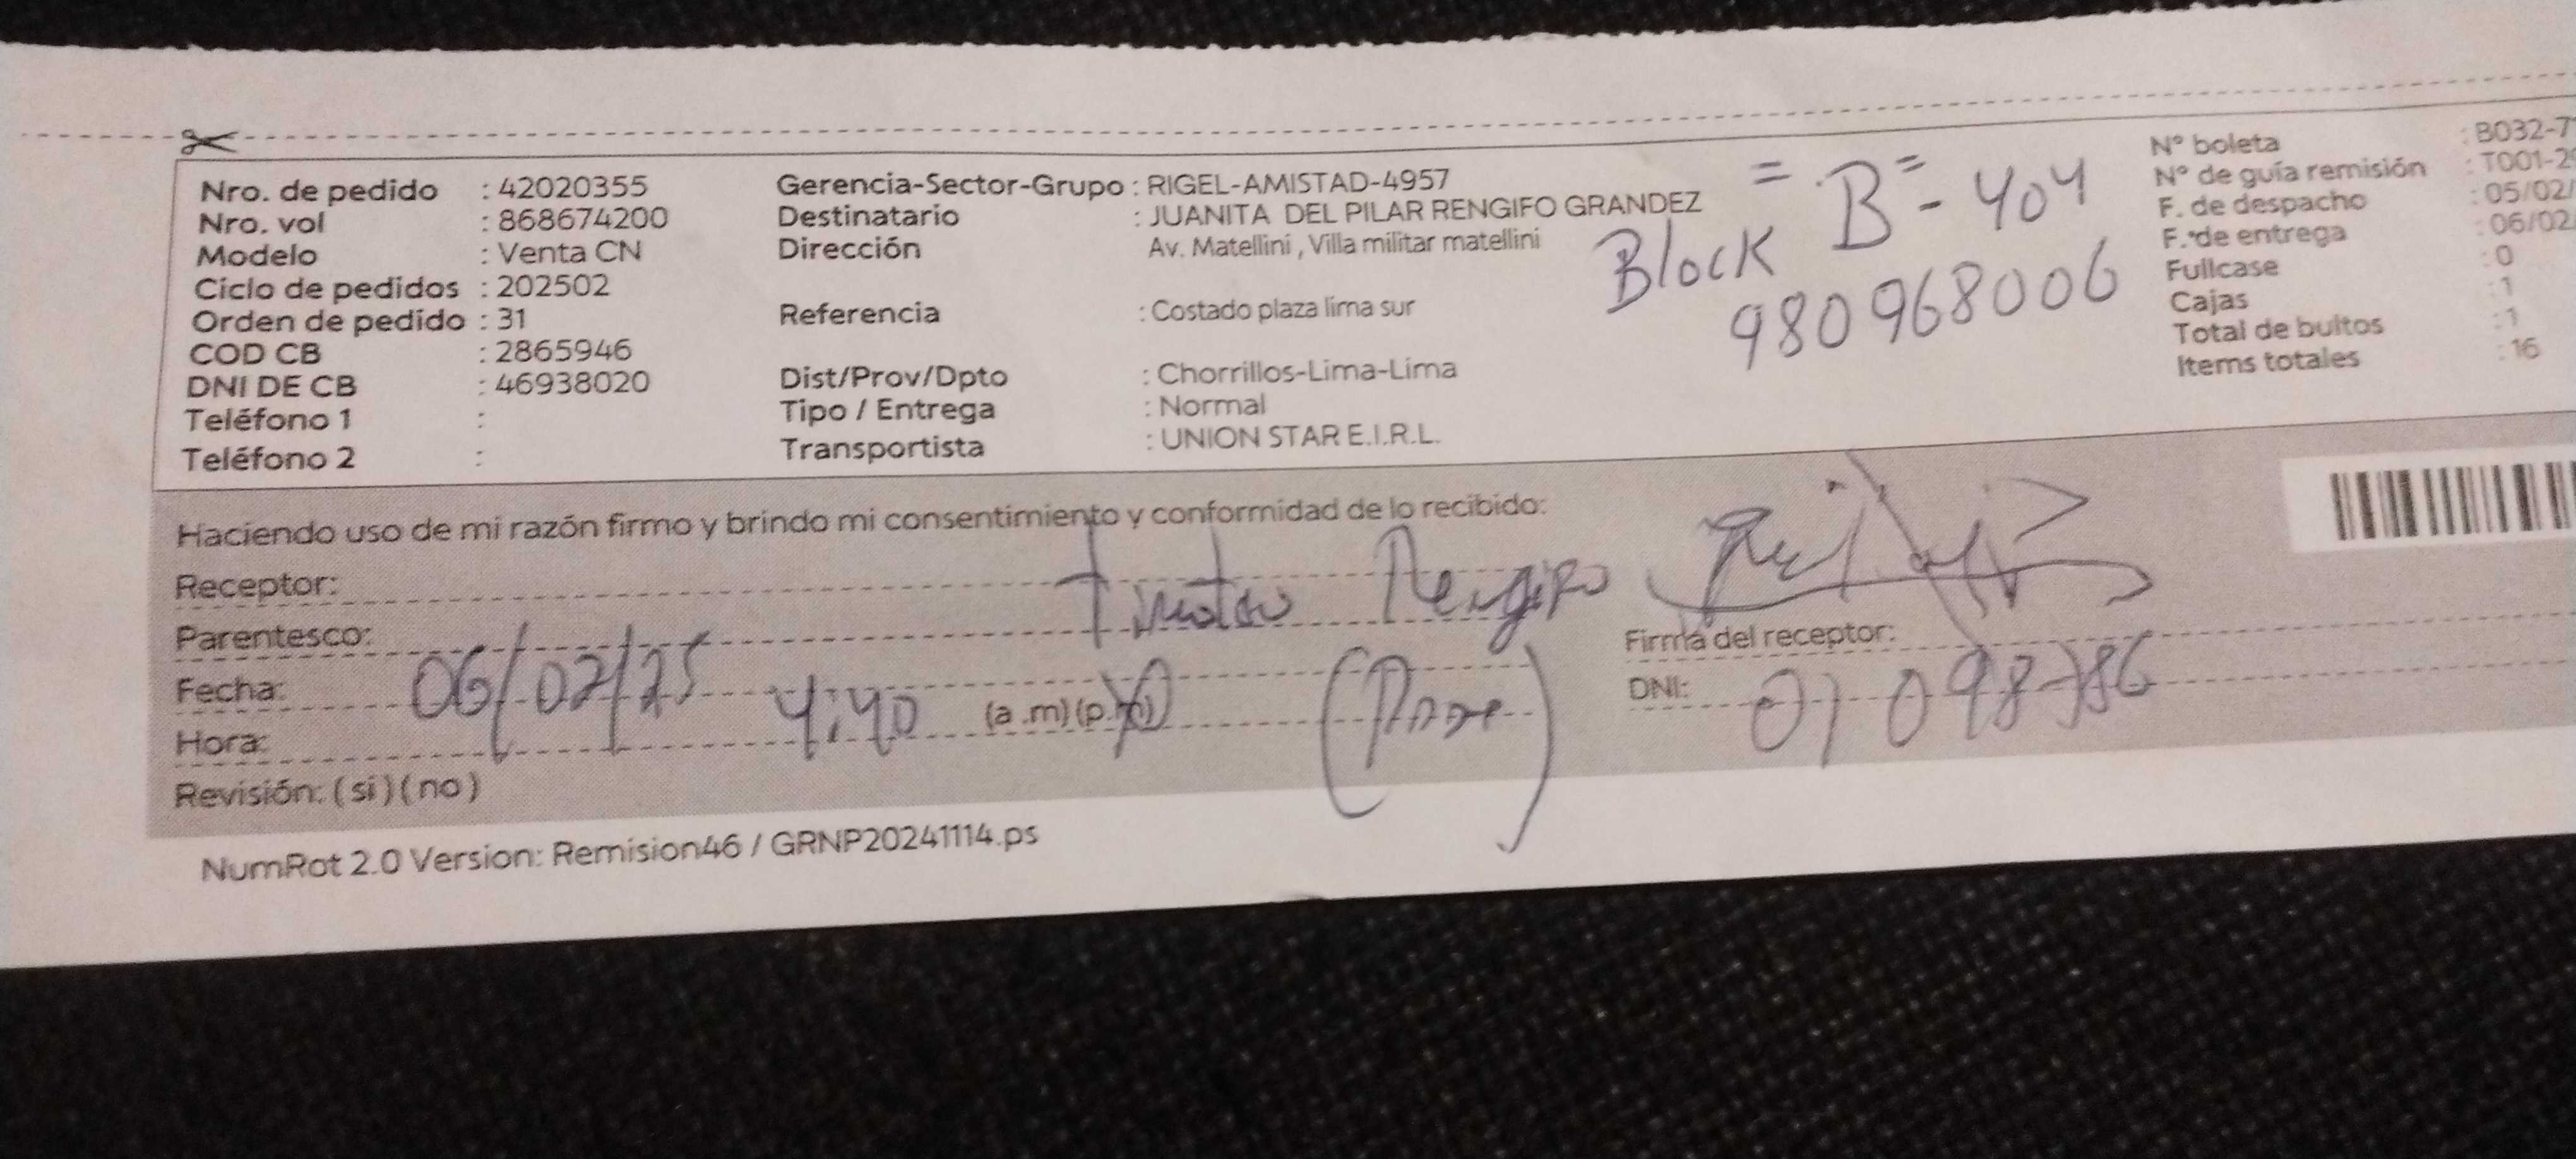 Nro. de pedido : 42020355
Nro. vol : 868674200
Modelo : Venta CN
Ciclo de pedidos : 202502
Orden de pedido : 31
COD CB : 2865946
DNI DE CB : 46938020
Teléfono 1 :
Teléfono 2 :
Gerencia-Sector-Grupo : RIGEL-AMISTAD-4957
Destinatario : JUANITA DEL PILAR RENGIFO GRANDEZ
Dirección Av. Matellini , Villa militar matellini
Referencia : Costado plaza lima sur
Dist/Prov/Dpto : Chorrillos-Lima-Lima
Tipo / Entrega : Normal
Transportista : UNION STAR E.I.R.L.
Block "B" - 404
980968006
N° boleta : B032-7
N° de guía remisión : T001-2
F. de despacho : 05/02/
F. de entrega : 06/02
Fullcase : 0
Cajas : 1
Total de bultos : 1
Items totales : 16
Haciendo uso de mi razón firmo y brindo mi consentimiento y conformidad de lo recibido:
Receptor: Rengifo
Parentesco:
Fecha: 06/02/25
Hora: 4:40 (a .m) (p.m)
Revisión: ( si ) ( no )
Firma del receptor:
DNI: 01098786
NumRot 2.0 Version: Remision46 / GRNP20241114.ps